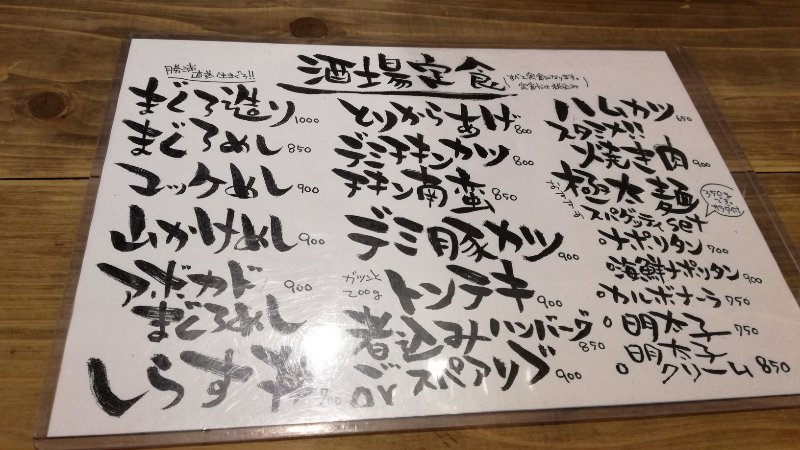 酒場定食
勝浦
直送 生まぐろ!!
まぐろ造り 1000
まぐろめし 850
ユッケめし 900
山かけめし 900
アボカド
まぐろめし 900
しらす丼
とりからあげ 800
デミチキンカツ 800
チキン南蛮 850
デミ豚カツ 900
ガツンと
200g
トンテキ 900
煮込みハンバーグ 850
or スペアリブ 900
ハムカツ 650
スタミナ!!
焼き肉 900
極太麺
スパゲッティset
350g
です。
ナポリタン 700
海鮮ナポリタン 900
カルボナーラ 750
明太子 750
明太子
クリーム 850